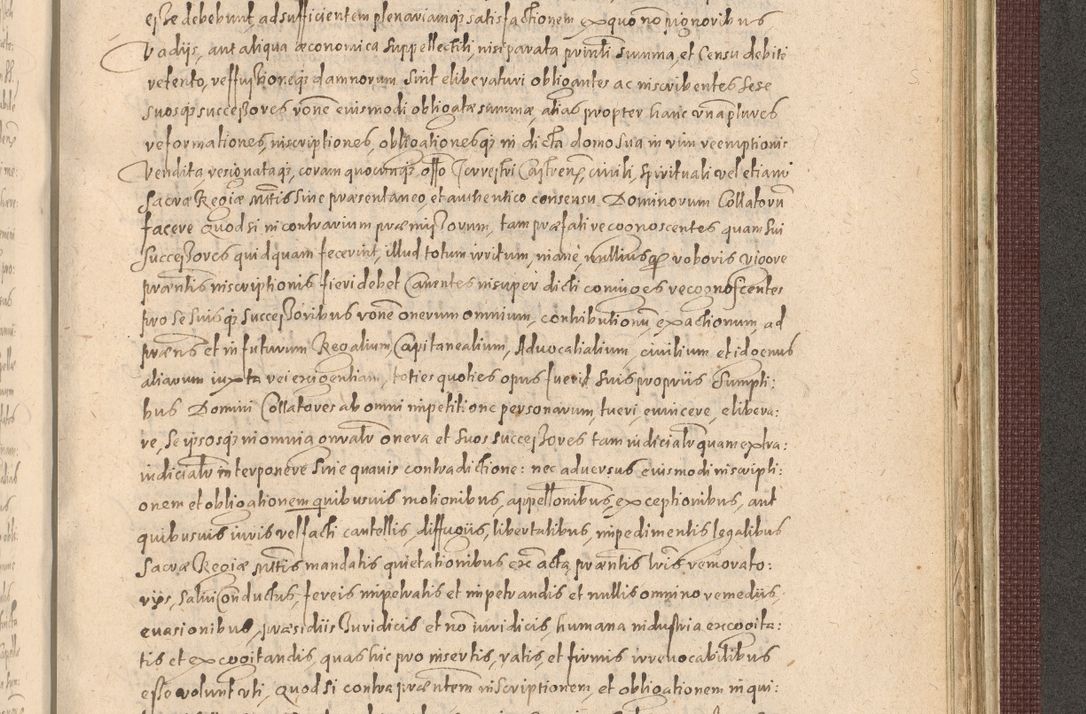 esse debebunt, ad sufficientem plenariamq satisfactionem, ex quo no pignoribus
Vadijs, aut aliqua œconomica suppellectili, nisi parata prinli summa, et Censu debite
retento, reffusioneq damnorum, sint eliberaturi obligantes ac inscribentes sese
suosq successores rõne eiusmodi obligatæ summæ, alias propter hanc vna plures
reformationes, inscriptiones, obligationesq in dicta domo sua in vim reemptionis
Vendita resignataq, coram quocunq offo Terrestri Castren, ciuili, spirituali vel etiam
Sacræ Regiæ Mttis sine præsentaneo, et authentico consensu Dominorum Collatorũ
facere quod si in contrarium præmissorum, tam præfati recognoscentes quam sui
successores quidquam fecerint, illud totum irritum, inane, nulliusq roboris vigore
præntis inscriptionis fieri debet Cauentes insuper dicti coniuges recognoscentes
pro se suisq successoribus rõne onerum omnium, contributionũ, exactionum, ad
præns et in futurum Regalium, Capitanealium, Aduocatialium, ciuilium, et id genus
aliarum iuxta rei exigentiam, toties quoties opus fuerit suis proprijs sumpti:
bus Domini Collatores ab omni impetitione personarum, tueri, euincere, elibera:
re, se ipsosq in omnia onralr onera et suos successores tam iudicialr quam extra:
iudicialr interponere sine quauis contradictione: nec aduersus eiusmodi inscripti:
onem et obligationem quibusuis motionibus, appellonibus, exceptionibus, aut
quibusuis iuris vel facti cautellis, diffugijs, libertatibus, impedimentis legalibus
Sacræ Regiæ Mttis mandatis quietationibus ex acta præntis lris remorato:
rijs, salui Conductus, fereis impetratis et impetrandis et nullis omnino remedijs,
euasionibus, præsidijs Iuridicis et no iuridicis, humana industria excogita:
tis et excogitandis, quas hic pro insertis, ratis, et firmis irreuocabilibus
esse volunt vti, quod si contra præntem inscriptionem, et obligationem in qui: